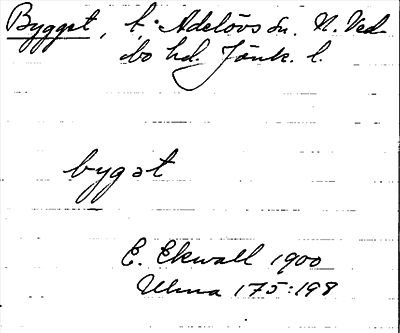 Byggst, t. Adelövs sn. N. Ved-
bo hd. Jönk. l.
bygst
E. Ekwall 1900
Ulma 175:198